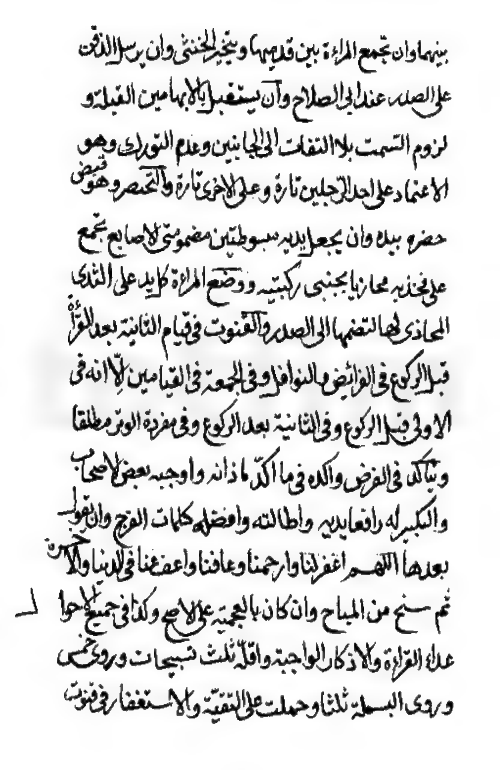 بينهما وان تجمع المراءة بين قدميها ويتخير الخنثى وان يرسل الذقن
على الصدر عند ابى الصلاح وان يستقبل بالابهامين القبلة و
لزوم السمت بلا التفات الى الجانبين وعدم التورك وهو
الاعتماد على احد الرجلين تارة وعلى الاخرى تارة والتخصر وهو قبض
خصره بيده وان يجعل يديه مبسوطتين مضمومتى الاصابع تجمع
على فخذيه محاذيا بجنبى ركبتيه ووضع المراءة كل يد على الثدى
المحاذى لها لتضمها الى الصدر والقنوت فى قيام الثانية بعد القراءة
قبل الركوع فى الفرائض والنوافل وفى الجمعة فى القيامين الا انه فى
الاولى قبل الركوع وفى الثانية بعد الركوع وفى مفردة الوتر مطلقا
ويتاكد فى الفرض واكده فى ما اكد اذانه واوجبه بعض الاصحاب
والتكبير له رافعا يديه واطالته وافضله كلمات الفرج وان يقول
بعدها اللهم اغفر لنا وارحمنا وعافنا واعف عنا فى الدنيا والاخرة
ثم سنح من المباح وان كان بالعجمية على الاصح وكذا فى جميع الاحوال
عداء القراءة والاذكار الواجبة واقله ثلث تسبيحات وروى خمس
وروى البسملة ثلثا وحملت على التقية والاستغفار فى قنوت